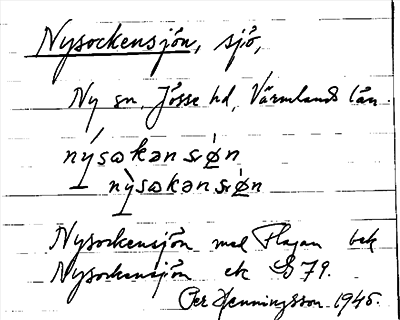 Nysockensjön, sjö,
Ny sn, Jösse hd, Värmlands län.
nýsωkən sı̷øn
nỳsωkən sı̷øn
Nysockensjön med Flagan bek
Nysockensjön ek S 79.
Per Henningsson 1945.